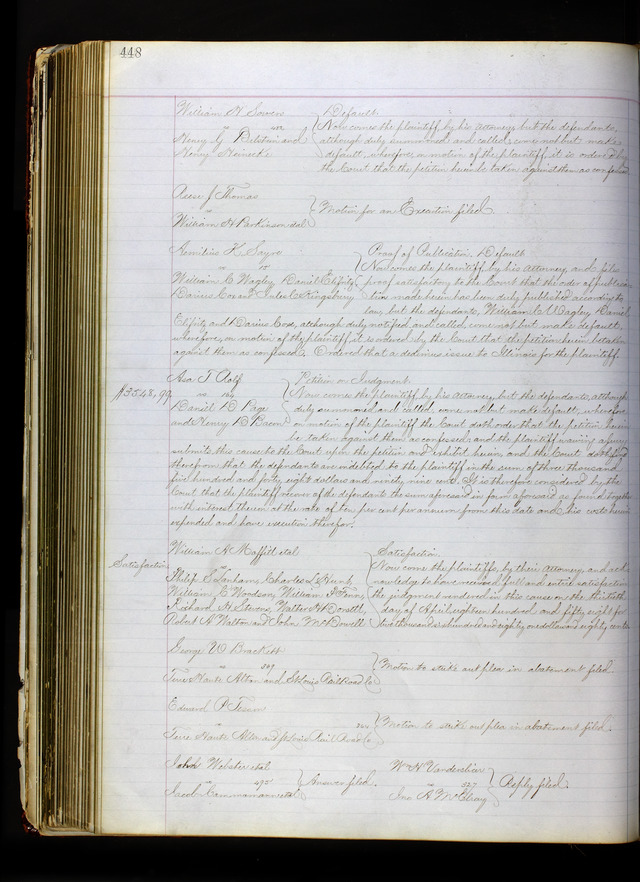 448
William H Sowers } Default
vs
Henry G Bilstein and
Henry Heinecke
Now comes the plaintiff by his attorney, but the defendants,
although duly summoned and called, come not but make
default, wherefore, on motion of the plaintiff it is ordered by
the Court that the petition herein be taken against them as confessed
Reese J Thomas
vs
William H Parkinson et al
} Motion for an Execution filed
K. Sayre
vs 15
William C Wagley Daniel
Darius Cox and Jules C Kingsbury
Proof of Publication. Default
Now comes the plaintiff by his Attorney, and files
proof satisfactory to the Court that the order of publica-
tion made herein has been duly published according to
law, but the defendants, William C Wagley Daniel
and Darius Cox, although duly notified and called, come not but make default,
wherefore, on motion of the plaintiff it is ordered by the Court that the petition herein be taken
against them as confessed. Ordered that a dedimus issue to Illinois for the plaintiff.
$3548.99
Asa T
vs 164
Daniel D Page
and Henry D Bacon
Petition on Judgment
Now comes the plaintiff by his attorney, but the defendants, although
duly summoned and called come not but make default, wherefore
on motion of the plaintiff the Court doth order that the petition herein
be taken against them as confessed; and the plaintiff waiving a jury
submits this cause to the Court upon the petition and exhibit herein, and the Court doth find
therefrom that the defendants are indebted to the plaintiff in the sum of three thousand
five hundred and forty eight dollars and ninety nine cents. It is therefore considered by the
Court that the plaintiff recover of the defendants the sum aforesaid in form aforesaid as found together
with interest thereon at the rate of ten per cent per annum from this date and his costs herein
expended and have execution therefor.
Satisfaction
William H Maffitt et al
vs
Philip S Lanham, Charles L Hunt,
William E Woodson, William P
Richard H Stevens, Walter H Dorsett,
Robert A Walton and John McDowell
Satisfaction
Now come the plaintiffs, by their attorney, and ack
nowledge to have received full and entire satisfaction of
the judgment rendered in this cause on the thirtieth
day of April eighteen hundred and fifty eight for
two thousand six hundred and eighty one dollars and eighty cents
George W Brackett
vs 349
Terre Haute Alton and St Louis Rail Road Co
} Motion to strike out plea in abatement filed.
Edward P Tesson
vs
Terre Haute Alton and St Louis Rail Road Co
} Motion to strike out plea in abatement filed.
Jabob Webster et al
vs 495
Jacob Cammann et al
} Answer filed.
Wm H Vanderlier
vs 327
Jno A McElray
} Reply filed.